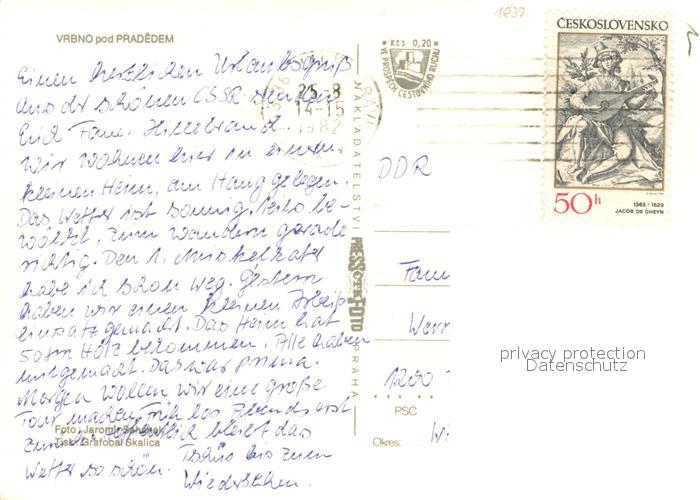 1237
VRBNO pod PRADĚDEM
Einen herzlichen Urlaubsgruß
aus der schönen CSSR senden
Euch Fam. Hillebrand.
Wir wohnen hier in einem
kleinen Heim, am Hang gelegen.
Das Wetter ist sonnig, teils be-
wölkt, zum Wandern gerade
richtig. Den 1. Muskelkater
habe ich schon weg. Gestern
haben wir einen kleinen Arbeits
einsatz gemacht. Das Heim hat
50 fm Holz bekommen. Alle haben
mitgemacht. Das war prima.
Morgen wollen wir eine große
Tour machen, früh los Abends erst
Hoffentlich bleibt das
Wetter so schön. Tschüs bis zum
Wiedersehen.
Foto: Jaromír
Tisk: Grafobal Skalica
25.-8
14-15
1982
NAKLADATELSTVÍ PRESSFOTO PRAHA
Kčs 0,20
VE PROSPĚCH CESTOVNÍHO RUCHU
ČESKOSLOVENSKO
50h
1565 - 1629
JACOB DE GHEYN
DDR
Fam
Wern
1200
PSČ
Okres: Wi
privacy protection
Datenschutz